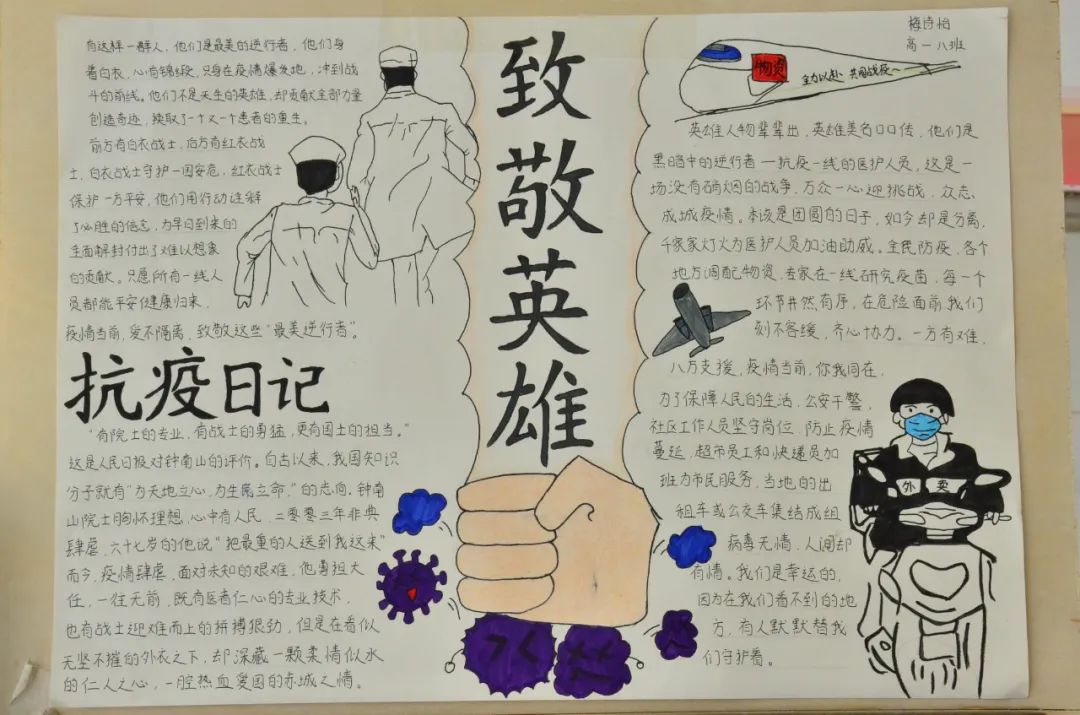 有这样一群人，他们是最美的逆行者，他们身
着白衣，心有锦缎，只身在疫情爆发地，冲到战
斗的前线。他们不是天生的英雄，却贡献全部力量
创造奇迹，换取了一个又一个患者的重生。
前方有白衣战士，后方有红衣战
士，白衣战士守护一国安危，红衣战士
保护一方平安，他们用行动诠释
了必胜的信念，为早日到来的
全面解封付出了难以想象
的贡献。只愿所有一线人
员都能平安健康归来，
疫情当前，爱不隔离，致敬这些“最美逆行者”。
抗疫日记
“有院士的专业，有战士的勇猛，更有国士的担当。”
这是人民日报对钟南山的评价。自古以来，我国知识
分子就有“为天地立心，为生民立命，”的志向，钟南
山院士胸怀理想，心中有人民，二零零三年非典
肆虐，六十七岁的他说“把最重的人送到我这来”
而今，疫情肆虐，面对未知的艰难，他勇担大
任，一往无前，既有医者仁心的专业技术，
也有战士迎难而上的拼搏狠劲，但是在看似
无坚不摧的外衣之下，却深藏一颗柔情似水
的仁人之心，一腔热血爱国的赤城之情。
致敬英雄
梅诗怡
高一八班
物资
全力以赴 共同战疫
英雄人物辈辈出，英雄美名口口传，他们是
黑暗中的逆行者一抗疫一线的医护人员，这是一
场没有硝烟的战争，万众一心迎挑战，众志
成城疫情。本该是团圆的日子，如今却是分离，
千家家灯火为医护人员加油助威。全民防疫，各个
地方调配物资，专家在一线研究疫苗，每一个
环节井然有序，在危险面前我们
刻不容缓，齐心协力。一方有难，
八方支援，疫情当前，你我同在，
为了保障人民的生活，公安干警，
社区工作人员坚守岗位，防止疫情
蔓延，超市员工和快递员加
班为市民服务，当地的出
租车或公交车集结成组
病毒无情，人间却
有情。我们是幸运的，
因为在我们看不到的地
方，有人默默替我
们守护着。
外卖